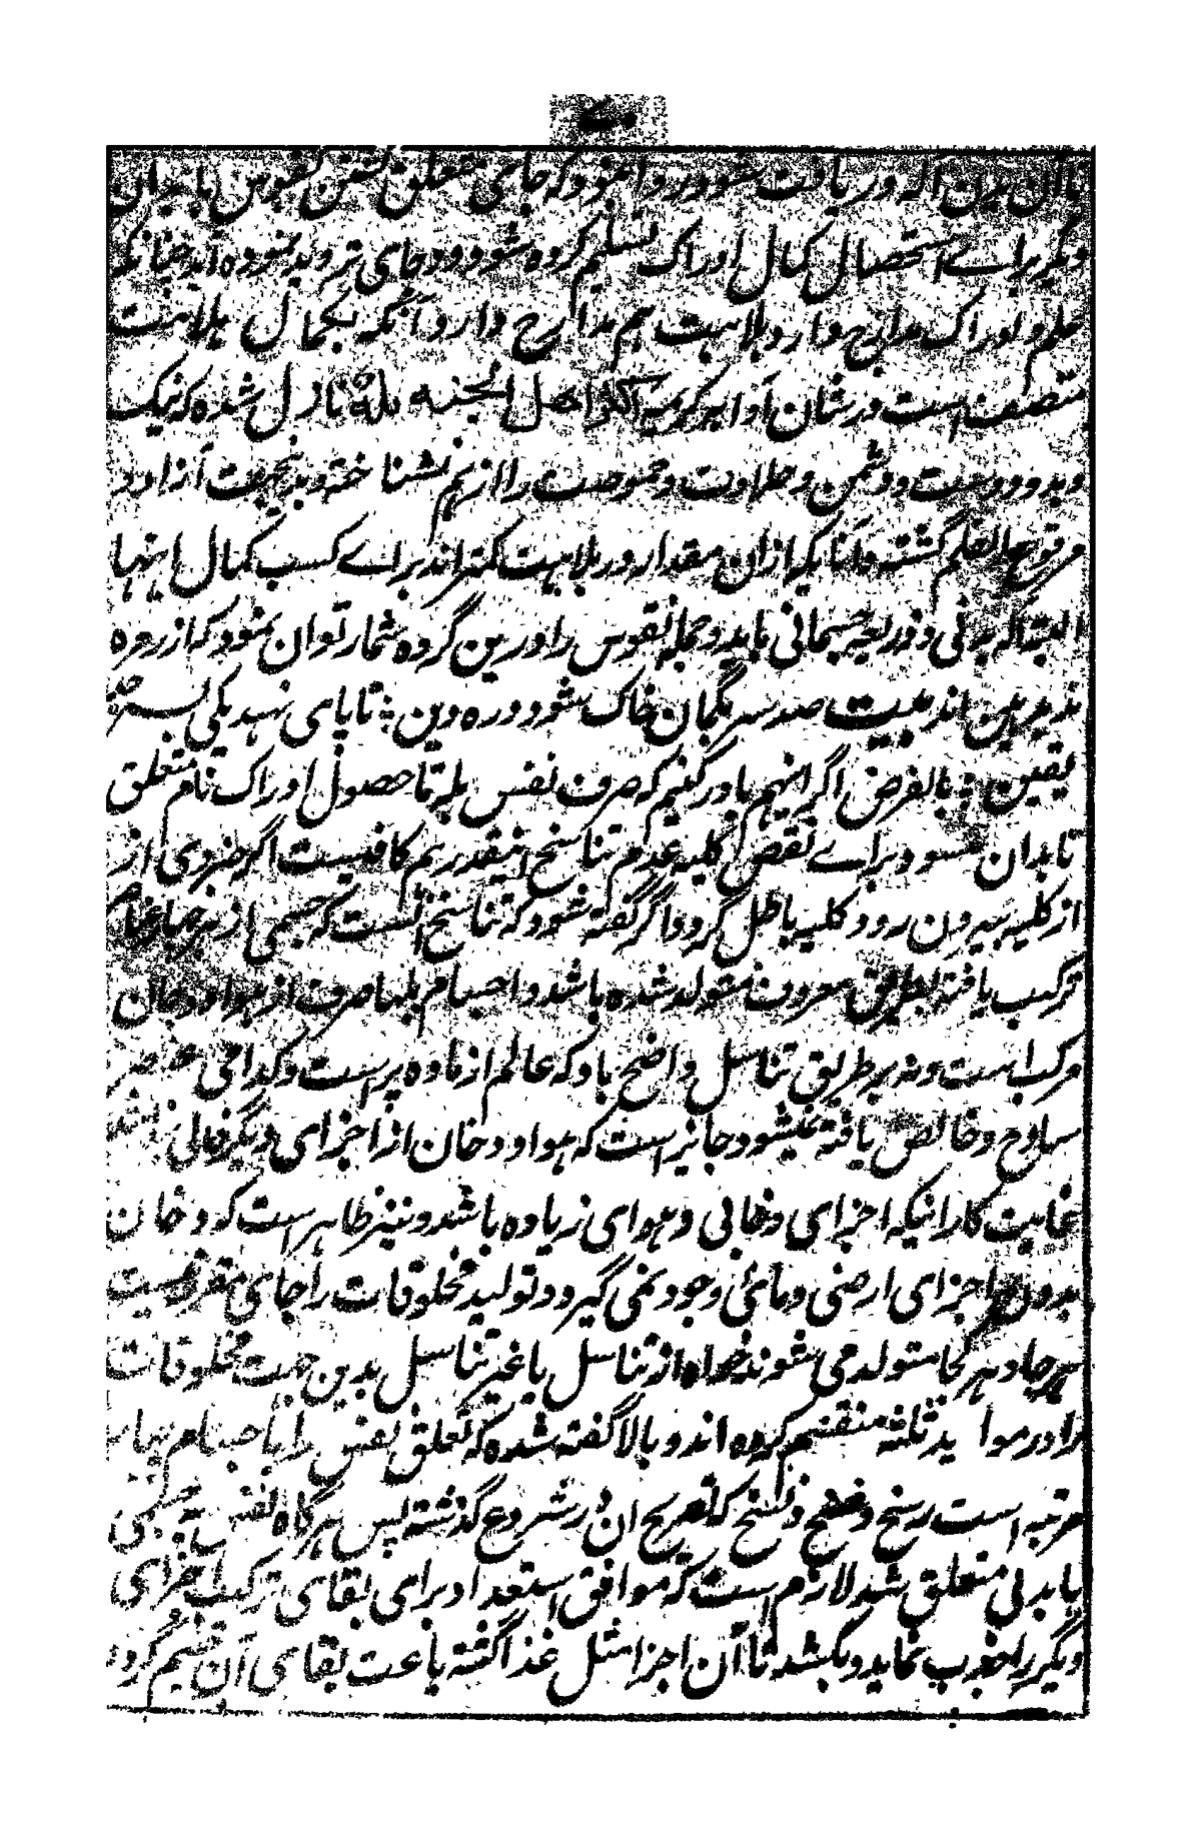 باآن بدین آله دریافت شود روا نمود که جای تعلق گفتن نفوس با جان
دیگر براے استحصال کمال ادراک تسلیم کرده شود و جای تردید نبوده اند چنانکه
علم و ادراک مدارج دارد بلاهت هم مدارج دارد آنکه بکمال بلاهت
متصف است درشان او اکثر اهل الجنه بله نازل شده که نیک
و بد و دوست و دشمن و حلاوت و حموضت را از هم نشناخته و بدینجهت آزاد و
مرفوع القلم گشته و آنانکه ازان مقدار در بلاهت کمتر اند براے کسب کمال اینها
البتاکه بدنی و ذریعه جسمانی باید و جمله نفوس را درین گروه شمار توان نمود که از زمره
اند بیت صد سر بگمان خاک شود در ره دین : تا پای نهد یکی بسر حد
یقین : بالفرض اگر اینهم باور کنیم که صرف نفس بله تا حصول ادراک تام متعلق
تابدان و براے نقض کلیه عدم تناسخ اینقدر هم کافیست اگر جزوی از
از کلیه بیرون رود کلیه باطل گردد اگر گفته شود که تناسخ آنست که جسمی از هر چهار عناصر
ترکیب یافته بطریق معروف متولد شده باشد و اجسام بلها صرف از هوا و دخان
مرکب است و نه بر طریق تناسل واضح باد که عالم از ماده پر است و کدامی عنصر
ساذج و خالص یافته نمیشود جائز است که هوا و دخان از اجزای دیگر خالی نباشد
غایت کار اینکه اجزای دخانی و هوای زیاده باشد و نیز ظاهر است که دخان
بدون اجزای ارضی و مائی وجود نمی گیرد و تولید مخلوقات را جای مقرر نیست
هر جا و هر کجا متولد می شوند خواه از تناسل یا غیر تناسل بدین جهت مخلوقات
را در موالید ثلثه منقسم کرده اند و بالا گفته شده که تعلق نفس را با اجسام چهار
مرتبه است رسخ و فسخ و نسخ که تصریح ان در شروع گذشته پس هرگاه نفس جسمی
یا بدنی متعلق شد لازم است که موافق استعداد برای بقای ترکیب اجزای
دیگر را خوب نماید و بکشد تا آن اجزا مثل غذا گشته باعث بقای آن جسم گردد